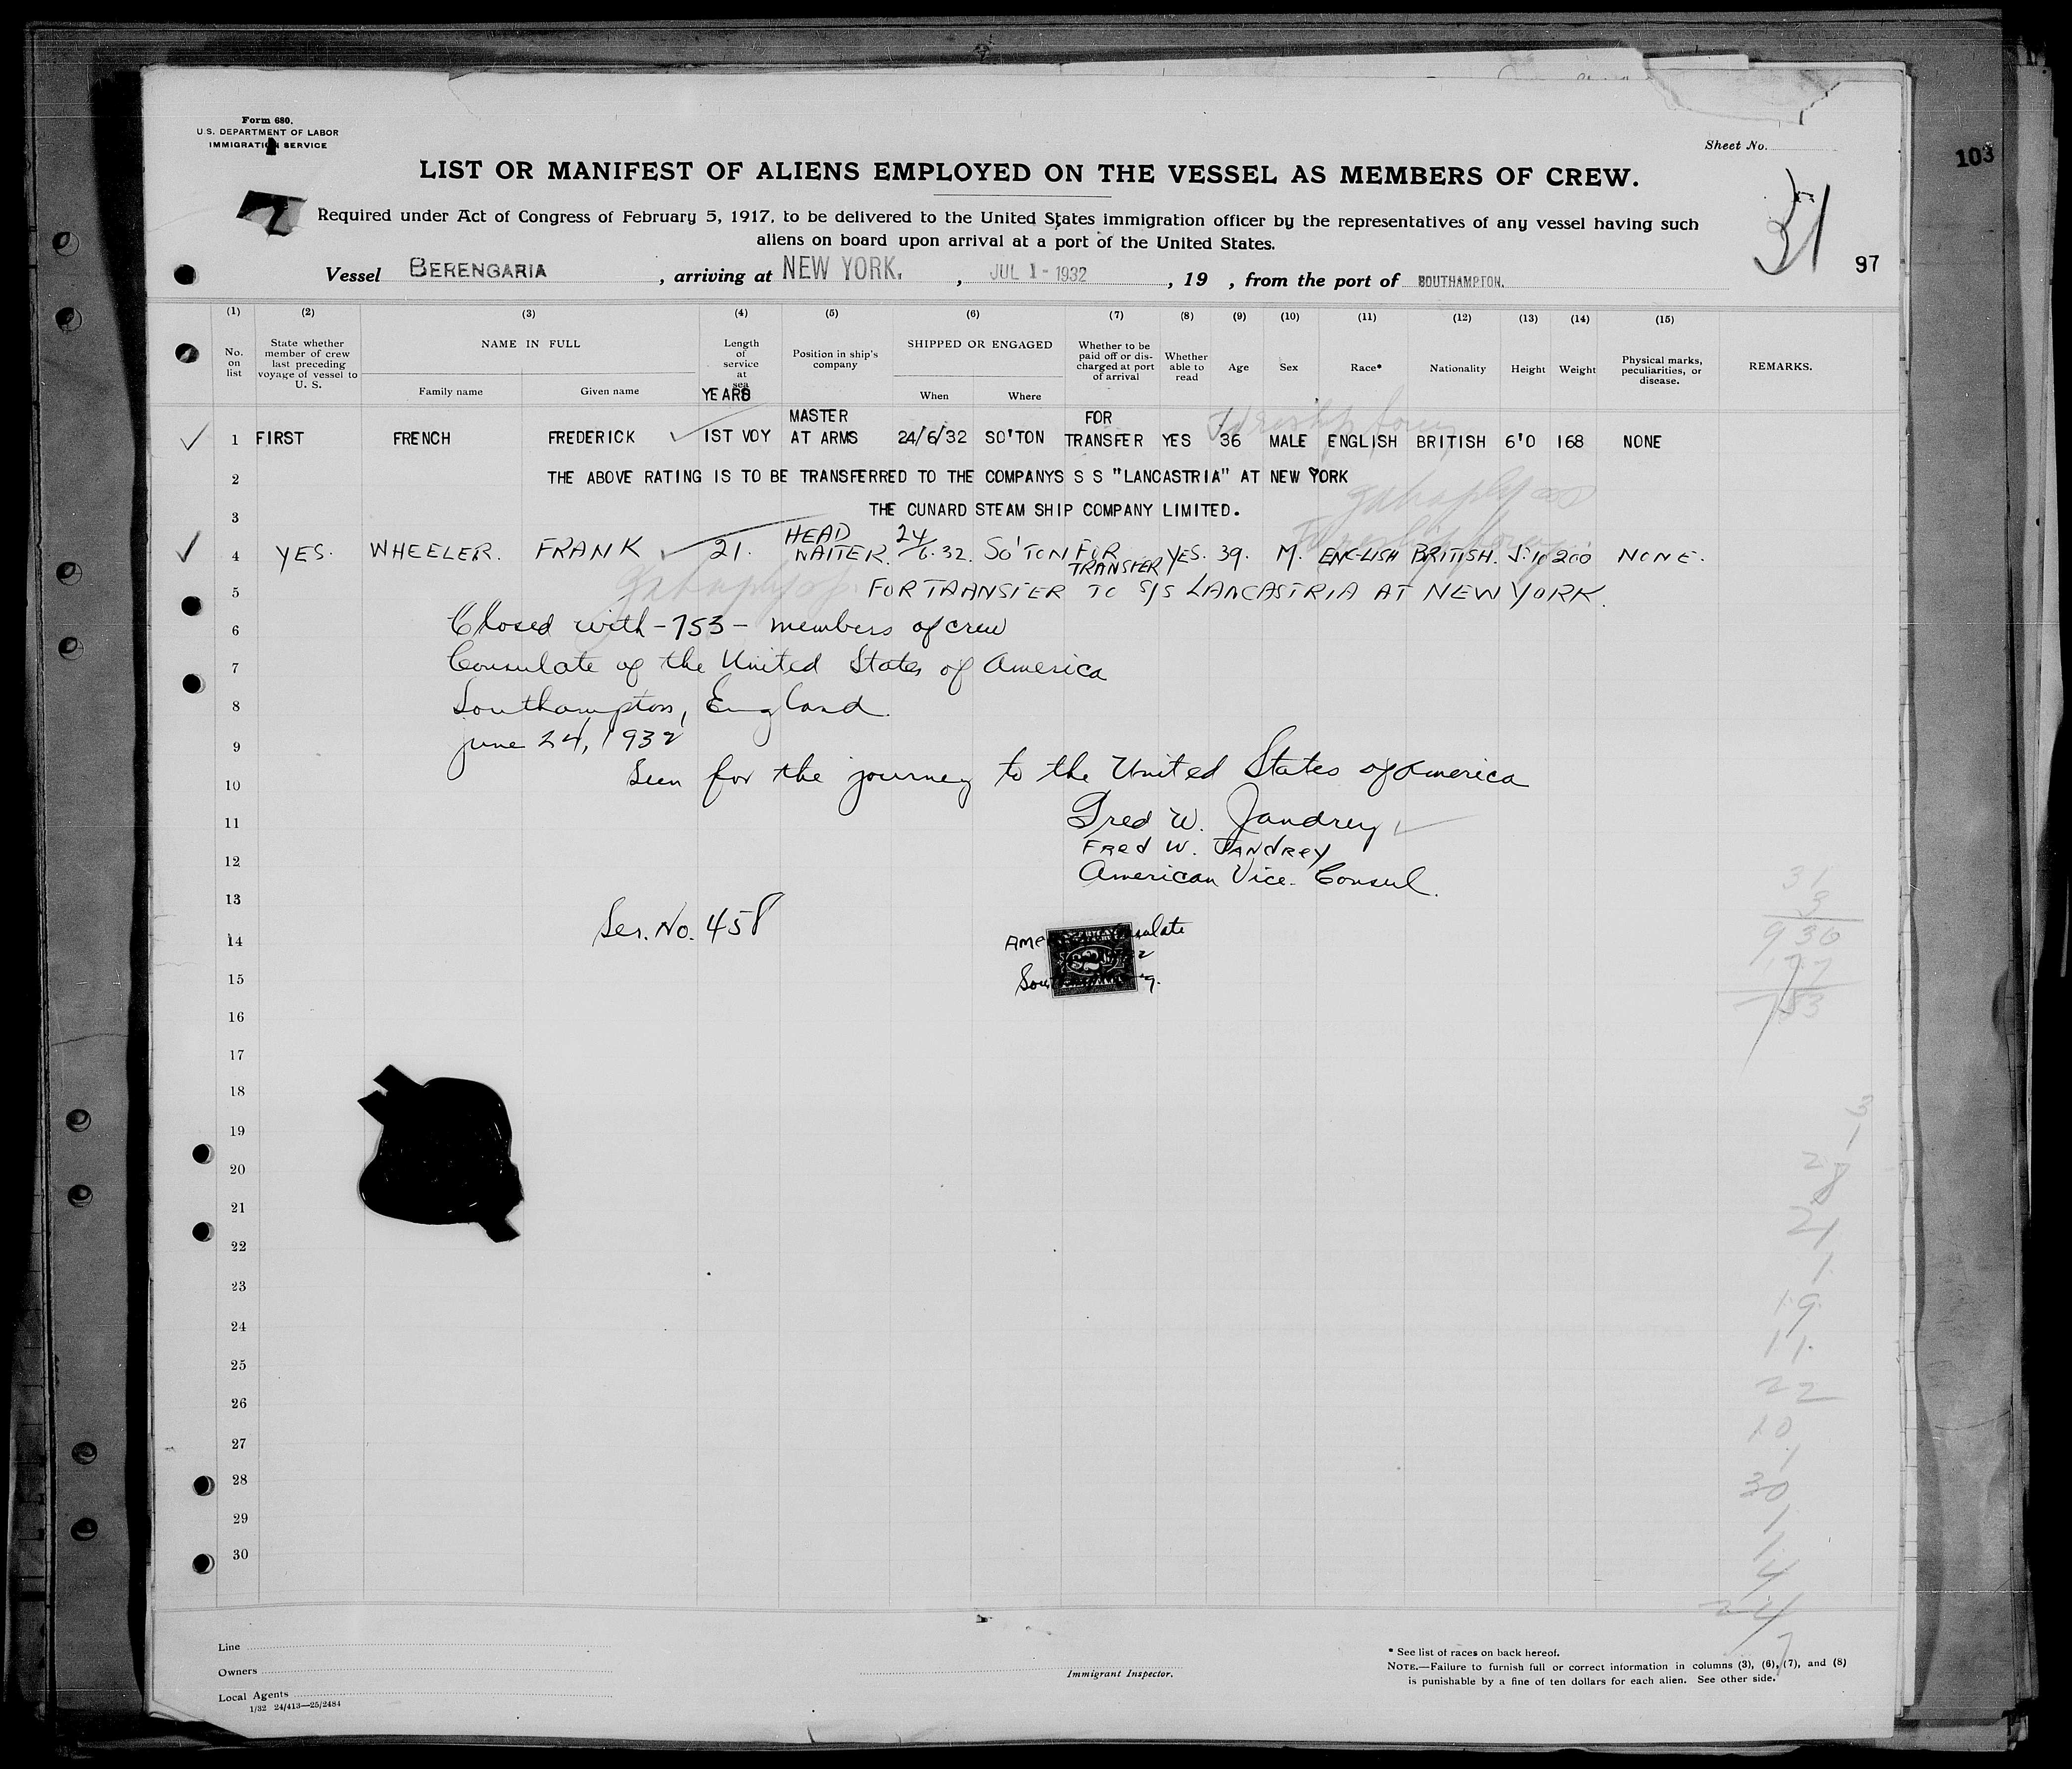 Form 680.
U.S. DEPARTMENT OF LABOR
IMMIGRATION SERVICE
Sheet No.
103
LIST OR MANIFEST OF ALIENS EMPLOYED ON THE VESSEL AS MEMBERS OF CREW.
Required under Act of Congress of February 5, 1917, to be delivered to the United States immigration officer by the representatives of any vessel having such
aliens on board upon arrival at a port of the United States.
31
97
Vessel BERENGARIA, arriving at NEW YORK., JUL 1-1932, 19 , from the port of SOUTHAMPTON.
(1) (2) (3) (4) (5) (6) (7) (8) (9) (10) (11) (12) (13) (14) (15)
No. on list
State whether member of crew last preceding voyage of vessel to U. S.
NAME IN FULL
Family name Given name
Length of service at sea
YEARS
Position in ship's company
SHIPPED OR ENGAGED
When Where
Whether to be paid off or discharged at port of arrival
Whether able to read
Age
Sex
Race*
Nationality
Height
Weight
Physical marks, peculiarities, or disease.
REMARKS.
1 FIRST FRENCH FREDERICK 1ST VOY MASTER AT ARMS 24/6/32 SO'TON FOR TRANSFER YES 36 MALE ENGLISH BRITISH 6'0 168 NONE
2 THE ABOVE RATING IS TO BE TRANSFERRED TO THE COMPANYS S S "LANCASTRIA" AT NEW YORK
3 THE CUNARD STEAM SHIP COMPANY LIMITED.
4 YES. WHEELER. FRANK 21. HEAD WAITER. 24/6.32. SO'TON FOR TRANSFER YES. 39. M. ENGLISH BRITISH. 5'10 200 NONE.
5 FOR TRANSFER TO S/S LANCASTRIA AT NEW YORK.
6 Closed with -753- members of crew
7 Consulate of the United States of America
8 Southampton, England.
9 june 24, 1932
10 Seen for the journey to the United States of America
11 Fred W. Jandrey
12 FRED W. JANDREY
American Vice. Consul.
13
Ser. No. 458
14
15
16
17
18
19
20
21
22
23
24
25
26
27
28
29
30
31
3
930
177
753
3
1
28
21
1
19
11
22
10
1
30
1
1
4
24
7
Line
Owners
Local Agents
1/32 24/413—25/2484
Immigrant Inspector.
* See list of races on back hereof.
NOTE.—Failure to furnish full or correct information in columns (3), (6), (7), and (8)
is punishable by a fine of ten dollars for each alien. See other side.